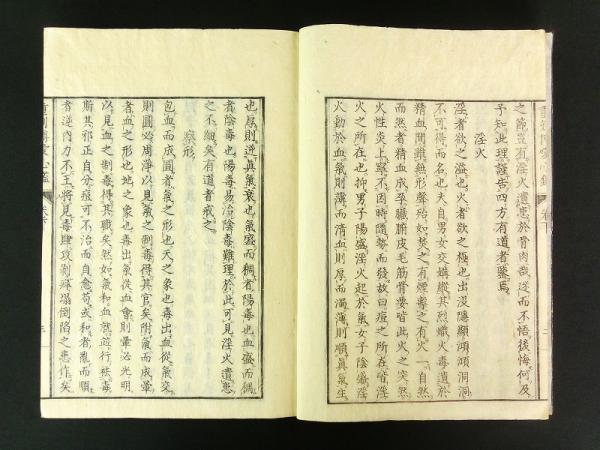 之範豈有淫火遺患於骨肉哉遂而不悟後悔何及
乎知此理謹告四方有道者鑒焉
淫火
淫者欲之溢也火者欲之極也出沒隱顯澒澒洞洞
不可得而名也夫自男女交媾縱其烈熾火毒遺於
精血間雖無形聲殆如焚之有煙毒之有
自然
而然者精血成孕臟腑皮毛筋骨要皆此火之突然
火性炎上竅不因時隨勢而發故曰痘之所在皆淫
火之所在也抑男子陽盛淫火起於氣女子陰盛淫
火動於血氣則薄而清血則厚而濁薄則順真氣生
也厚則逆真氣衰也氣盛而稠者陽毒也血盛而稠
者陰毒也陽毒易治陰毒難理於此可見淫火遺患
之不細矣有道者戒之
察形
包血而成圓者氣之形也天之象也毒出氣從氣交
則圓必周淨以見氣之制毒得其官矣附氣而成暈
者血之形也地之象也毒出氣從血會則暈必光明
以見血之制毒得其職矣然如氣和血就並行祛毒
斯其邪正自分痘可不治而自愈苟或和者亂而順
者逆內力不王將見毒肆攻剝癢塌倒陷之患作矣